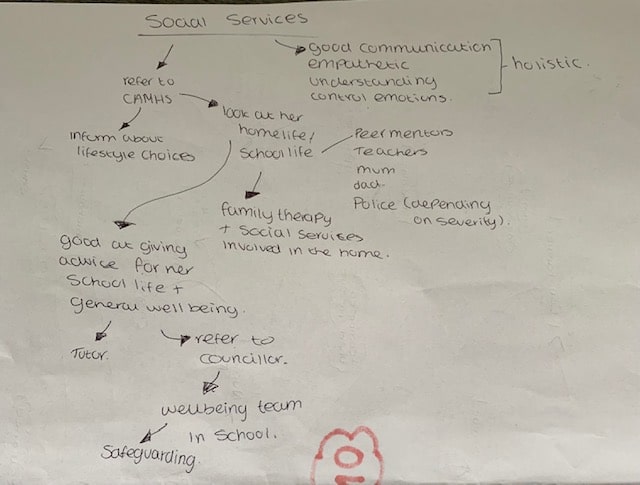 Social Services
good communication
empathetic
understanding
control emotions.
holistic.
refer to
CAMHS
Inform about
lifestyle choices
look at her
homelife/
School life
Peer mentors
Teachers
mum
dad
Police (depending
on severity).
family therapy
+ social services
involved in the home.
good at giving
advice for her
School life +
general wellbeing.
Tutor.
refer to
councillor.
wellbeing team
in School.
Safeguarding.
10